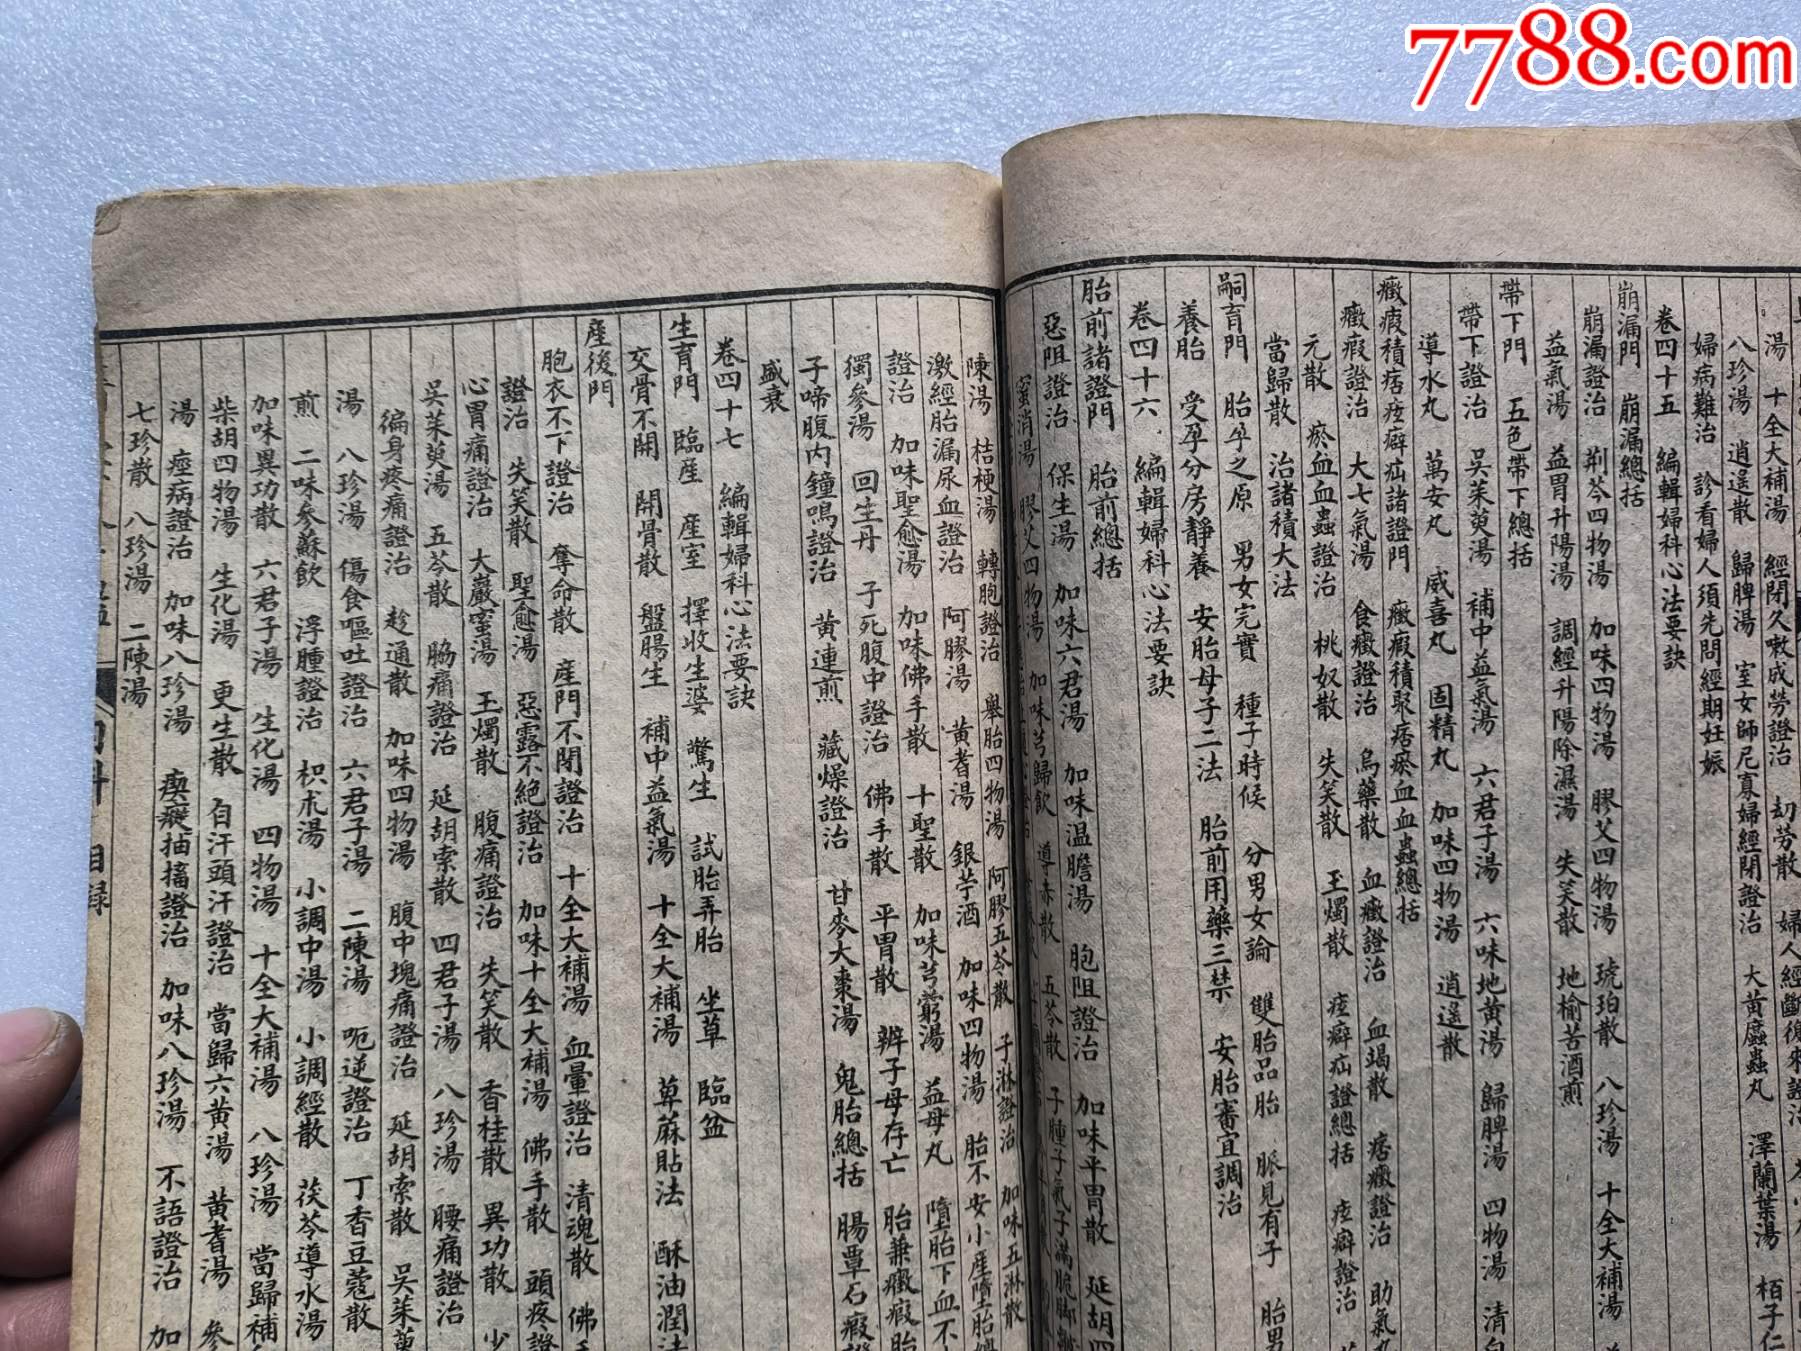 7788.com
湯 十全大補湯 經閉久嗽成勞證治 劫勞散 婦人經斷復來證治
八珍湯 逍遙散 歸脾湯 室女師尼寡婦經閉證治 大黃䗪蟲丸 澤蘭葉湯 栢子仁
婦病難治 診看婦人須先問經期妊娠
卷四十五 編輯婦科心法要訣
崩漏門 崩漏總括
崩漏證治 荆芩四物湯 加味四物湯 膠艾四物湯 琥珀散 八珍湯 十全大補湯
益氣湯 益胃升陽湯 調經升陽除濕湯 失笑散 地榆苦酒煎
帶下門 五色帶下總括
帶下證治 吳茱萸湯 補中益氣湯 六君子湯 六味地黃湯 歸脾湯 四物湯 清白
導水丸 萬安丸 威喜丸 固精丸 加味四物湯 逍遙散
癥瘕積痞痃癖疝諸證門 癥瘕積聚痞瘀血血蠱總括
癥瘕證治 大七氣湯 食癥證治 烏藥散 血癥證治 血竭散 痞癥證治 助氣丸
元散 瘀血血蠱證治 桃奴散 失笑散 玉燭散 痃癖疝證總括 痃癖證治
當歸散 治諸積大法
嗣育門 胎孕之原 男女完實 種子時候 分男女論 雙胎品胎 脈見有子 胎男
養胎 受孕分房靜養 安胎母子二法 胎前用藥三禁 安胎審宜調治
卷四十六 編輯婦科心法要訣
胎前諸證門 胎前總括
惡阻證治 保生湯 加味六君湯 加味温膽湯 胞阻證治 加味平胃散 延胡四
蜜消湯 膠艾四物湯 加味芎歸飲 導赤散 五苓散 子腫子氣子滿脆脚
陳湯 桔梗湯 轉胞證治 舉胎四物湯 阿膠五苓散 子淋證治 加味五淋散
激經胎漏尿血證治 阿膠湯 黃耆湯 銀苧酒 加味四物湯 胎不安小產墮胎總
證治 加味聖愈湯 加味佛手散 十聖散 加味芎藭湯 益母丸 墮胎下血不
獨參湯 回生丹 子死腹中證治 佛手散 平胃散 辨子母存亡 胎兼癥瘕胎
子啼腹内鐘鳴證治 黃連煎 藏燥證治 甘麥大棗湯 鬼胎總括 腸覃石瘕證
盛衰
卷四十七 編輯婦科心法要訣
生育門 臨產 產室 擇收生婆 驚生 試胎弄胎 坐草 臨盆
交骨不開 開骨散 盤腸生 補中益氣湯 十全大補湯 草蔴貼法 酥油潤法
產後門
胞衣不下證治 奪命散 產門不閉證治 十全大補湯 血暈證治 清魂散 佛手
證治 失笑散 聖愈湯 惡露不絕證治 加味十全大補湯 佛手散 頭疼證
心胃痛證治 大巖蜜湯 玉燭散 腹痛證治 失笑散 香桂散 異功散 少
吳茱萸湯 五苓散 脇痛證治 延胡索散 四君子湯 八珍湯 腰痛證治
徧身疼痛證治 趁通散 加味四物湯 腹中塊痛證治 延胡索散 吳茱萸
湯 八珍湯 傷食嘔吐證治 六君子湯 二陳湯 呃逆證治 丁香豆蔻散
煎 二味參蘇飲 浮腫證治 枳朮湯 小調中湯 小調經散 茯苓導水湯
加味異功散 六君子湯 生化湯 四物湯 十全大補湯 八珍湯 當歸補
柴胡四物湯 生化湯 更生散 自汗頭汗證治 當歸六黃湯 黃耆湯 參
湯 痙病證治 加味八珍湯 瘈瘲抽搐證治 加味八珍湯 不語證治 加
七珍散 八珍湯 二陳湯
目錄